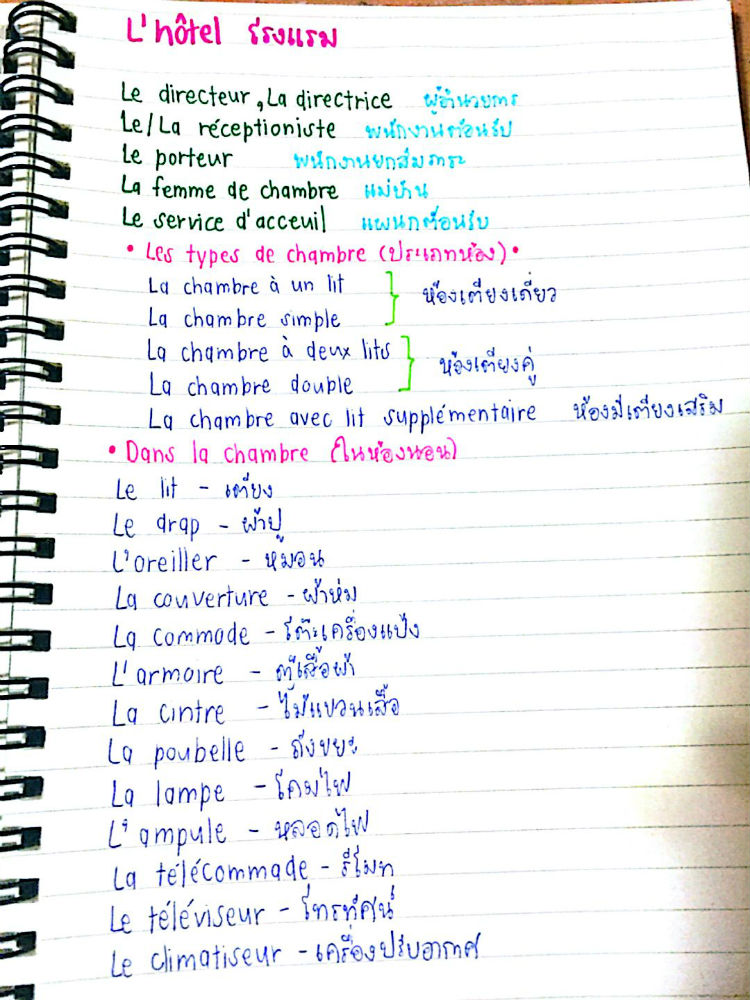 L'hôtel โรงแรม
Le directeur, La directrice ผู้อำนวยการ
Le/La réceptioniste พนักงานต้อนรับ
Le porteur พนักงานยกสัมภาระ
La femme de chambre แม่บ้าน
Le service d'acceuil แผนกต้อนรับ
• Les types de chambre (ประเภทห้อง) •
La chambre à un lit
La chambre simple } ห้องเตียงเดี่ยว
La chambre à deux lits
La chambre double } ห้องเตียงคู่
La chambre avec lit supplémentaire ห้องมีเตียงเสริม
• Dans la chambre (ในห้องนอน)
Le lit - เตียง
Le drap - ผ้าปู
L'oreiller - หมอน
La couverture - ผ้าห่ม
La commode - โต๊ะเครื่องแป้ง
L'armoire - ตู้เสื้อผ้า
La cintre - ไม้แขวนเสื้อ
La poubelle - ถังขยะ
La lampe - โคมไฟ
L'ampule - หลอดไฟ
La télécommade - รีโมท
Le téléviseur - โทรทัศน์
Le climatiseur - เครื่องปรับอากาศ